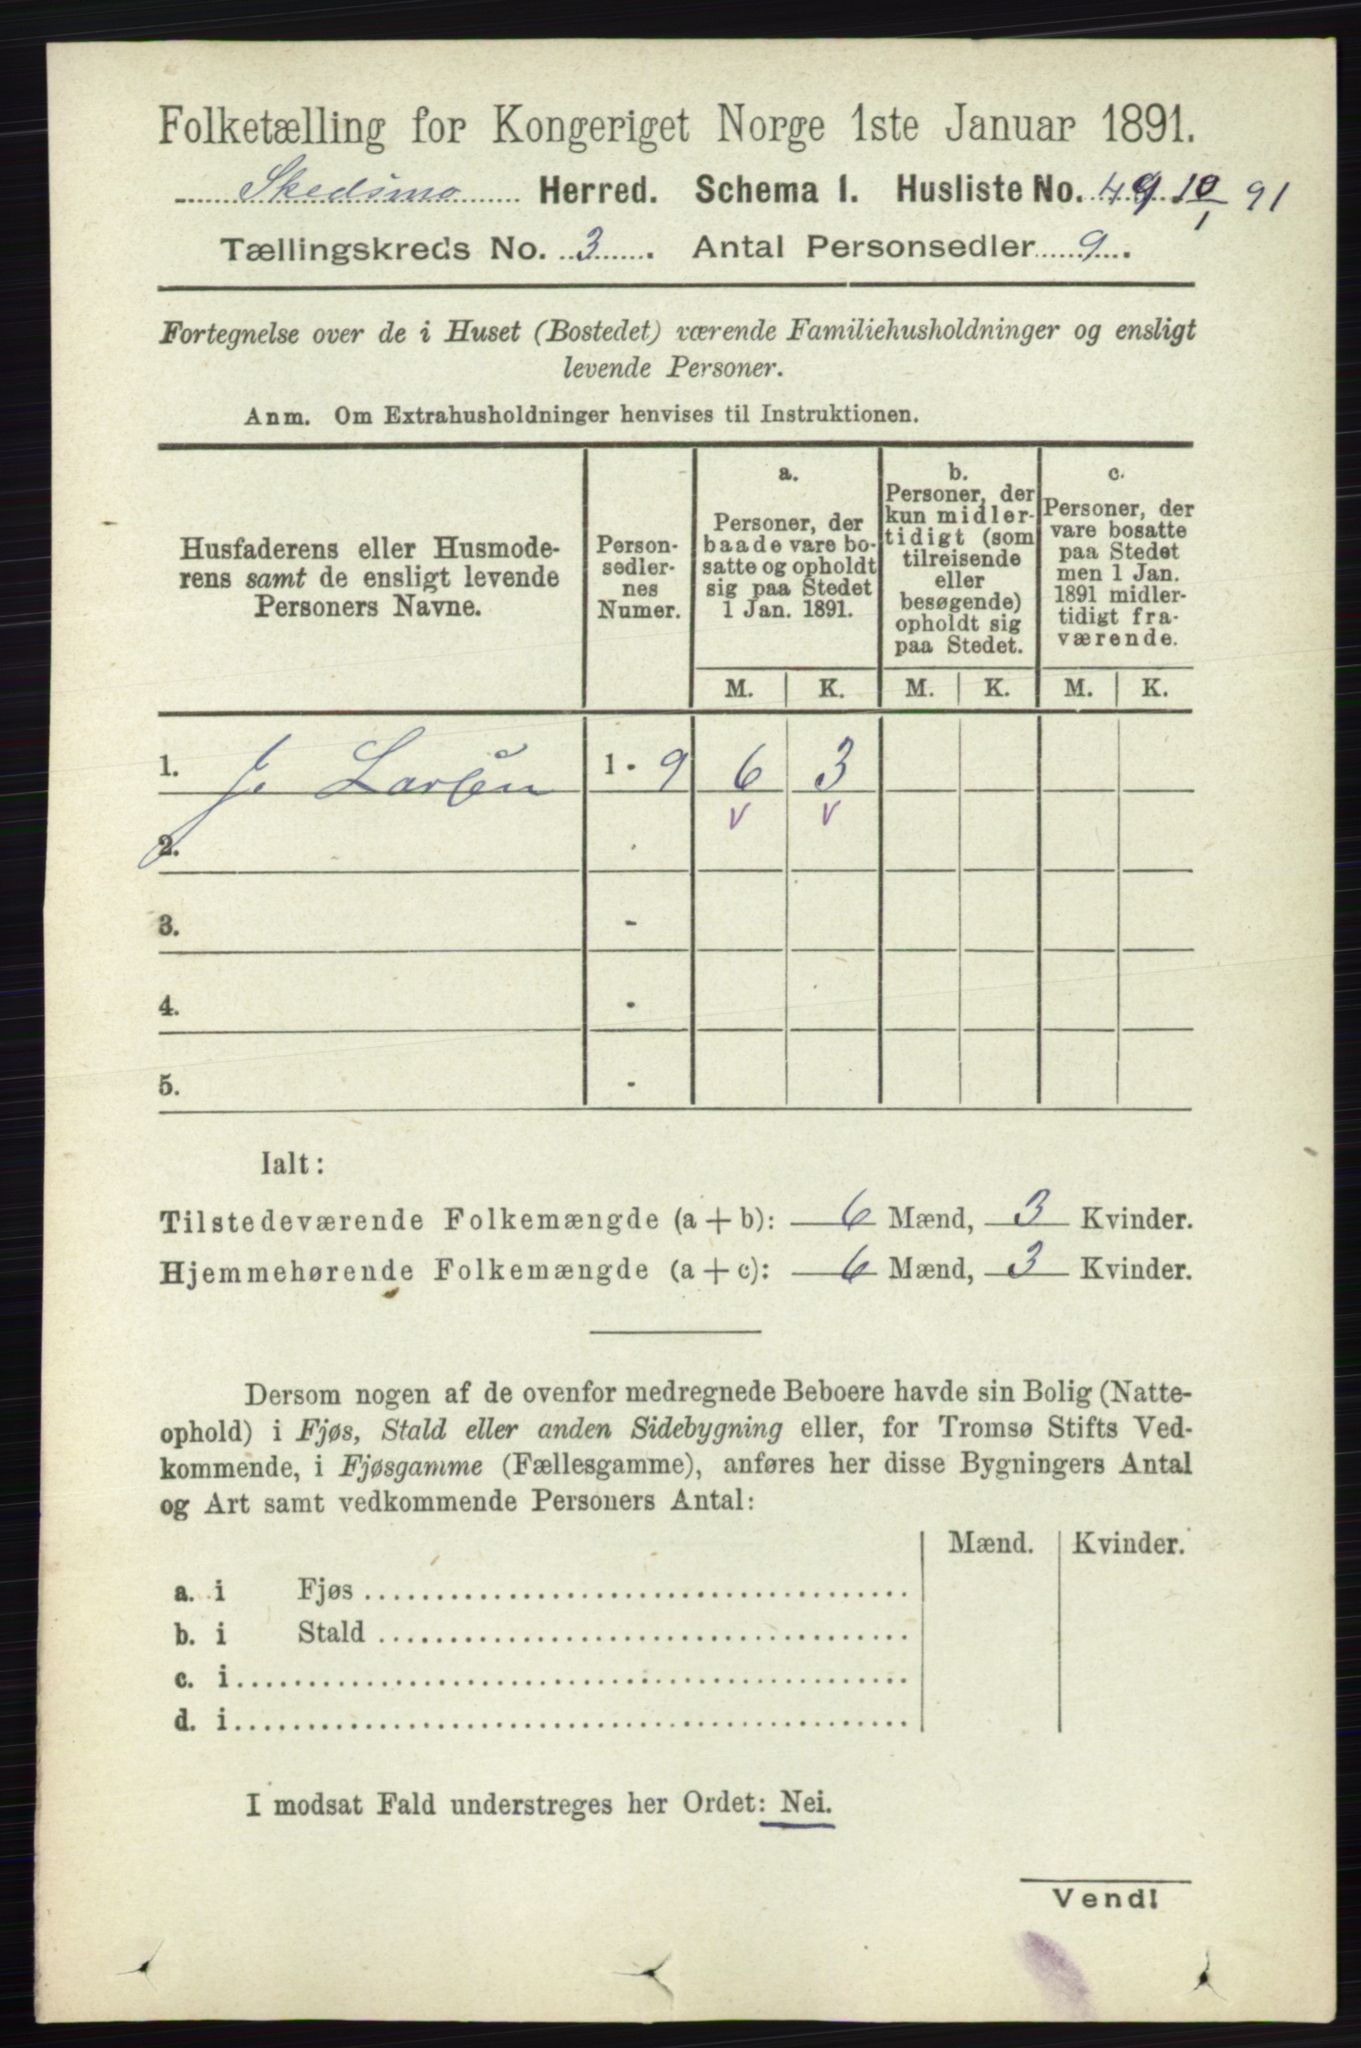 Folketælling for Kongeriget Norge 1ste Januar 1891.
Skedsmo Herred. Schema 1. Husliste No. 49 10/1 91
Tællingskreds No. 3. Antal Personsedler 9.
Fortegnelse over de i Huset (Bostedet) værende Familiehusholdninger og ensligt
levende Personer.
Anm. Om Extrahusholdninger henvises til Instruktionen.
Husfaderens eller Husmode-
rens samt de ensligt levende
Personers Navne.
Person-
sedler-
nes
Numer.
a.
Personer, der
baade vare bo-
satte og opholdt
sig paa Stedet
1 Jan. 1891.
b.
Personer, der
kun midler-
tidigt (som
tilreisende
eller
besøgende)
opholdt sig
paa Stedet.
c.
Personer, der
vare bosatte
paa Stedet
men 1 Jan.
1891 midler-
tidigt fra-
værende.
M. K. M. K. M. K.
1. J. Larsen 1 - 9 6 3
v v
2. -
3. -
4. -
5. -
Ialt:
Tilstedeværende Folkemængde (a + b): 6 Mænd, 3 Kvinder.
Hjemmehørende Folkemængde (a + c): 6 Mænd, 3 Kvinder.
Dersom nogen af de ovenfor medregnede Beboere havde sin Bolig (Natte-
ophold) i Fjøs, Stald eller anden Sidebygning eller, for Tromsø Stifts Ved-
kommende, i Fjøsgamme (Fællesgamme), anføres her disse Bygningers Antal
og Art samt vedkommende Personers Antal:
Mænd. Kvinder.
a. i Fjøs
b. i Stald
c. i
d. i
I modsat Fald understreges her Ordet: Nei.
Vend!